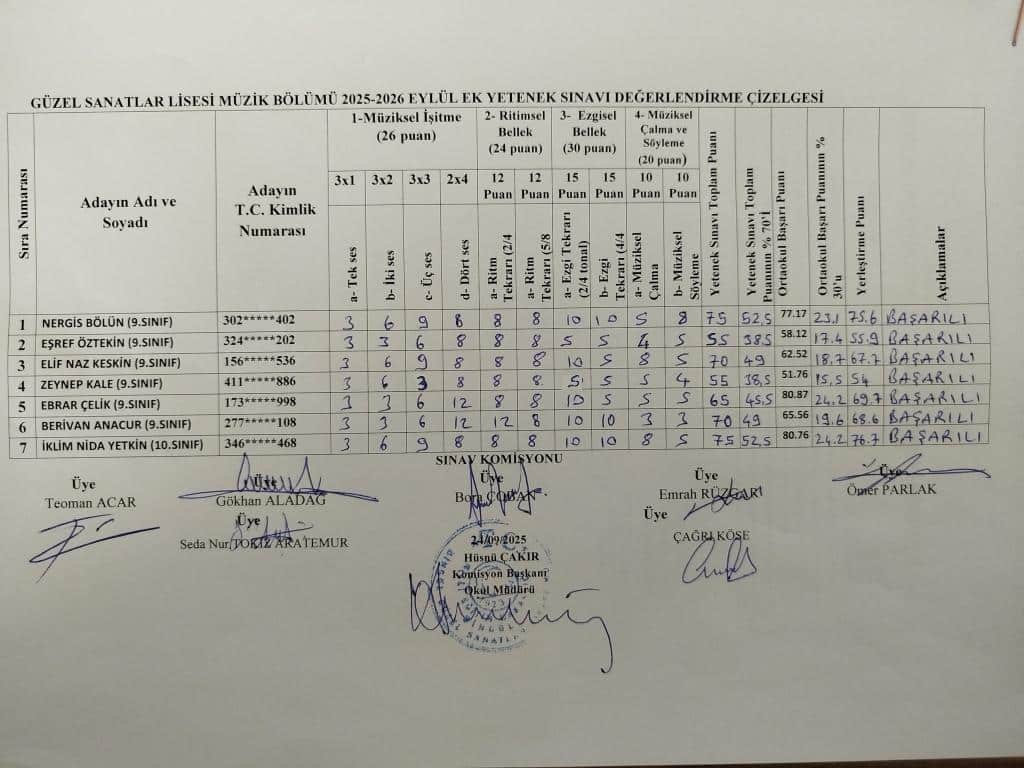 GÜZEL SANATLAR LİSESİ MÜZİK BÖLÜMÜ 2025-2026 EYLÜL EK YETENEK SINAVI DEĞERLENDİRME ÇİZELGESİ
Sıra Numarası
Adayın Adı ve Soyadı
Adayın T.C. Kimlik Numarası
1-Müziksel İşitme (26 puan)
2- Ritimsel Bellek (24 puan)
3- Ezgisel Bellek (30 puan)
4- Müziksel Çalma ve Söyleme (20 puan)
Yetenek Sınavı Toplam Puanı
Yetenek Sınavı Toplam Puanının % 70'İ
Ortaokul Başarı Puanı
Ortaokul Başarı Puanının % 30'u
Yerleştirme Puanı
Açıklamalar
3x1 3x2 3x3 2x4 12 Puan 12 Puan 15 Puan 15 Puan 10 Puan 10 Puan
a- Tek ses
b- İki ses
c- Üç ses
d- Dört ses
a- Ritm Tekrarı (2/4
a- Ritm Tekrarı (5/8
a- Ezgi Tekrarı (2/4 tonal)
b- Ezgi Tekrarı (4/4
a- Müziksel Çalma
b- Müziksel Söyleme
1 NERGİS BÖLÜN (9.SINIF) 302*****402 3 6 9 8 8 8 10 10 5 8 75 52,5 77.17 23,1 75.6 BAŞARILI
2 EŞREF ÖZTEKİN (9.SINIF) 324*****202 3 3 6 8 8 8 5 5 4 5 55 38,5 58.12 17.4 55.9 BAŞARILI
3 ELİF NAZ KESKİN (9.SINIF) 156*****536 3 6 9 8 8 8 10 5 8 5 70 49 62.52 18.7 67.7 BAŞARILI
4 ZEYNEP KALE (9.SINIF) 411*****886 3 6 3 8 8 8 5 5 5 4 55 38,5 51.76 15,5 54 BAŞARILI
5 EBRAR ÇELİK (9.SINIF) 173*****998 3 3 6 12 8 8 10 5 5 5 65 45,5 80.87 24.2 69.7 BAŞARILI
6 BERİVAN ANACUR (9.SINIF) 277*****108 3 3 6 12 12 8 10 10 3 3 70 49 65.56 19.6 68.6 BAŞARILI
7 İKLİM NİDA YETKİN (10.SINIF) 346*****468 3 6 9 8 8 8 10 10 8 5 75 52,5 80.76 24.2 76.7 BAŞARILI
SINAV KOMİSYONU
Üye Üye Üye Üye Üye
Teoman ACAR Gökhan ALADAĞ Bora ÇOBAN Emrah RÜZGAR Ömer PARLAK
Üye Üye
Seda Nur TOKİZ ARATEMUR ÇAĞRI KÖSE
24/09/2025
Hüsnü ÇAKIR
Komisyon Başkanı
Okul Müdürü